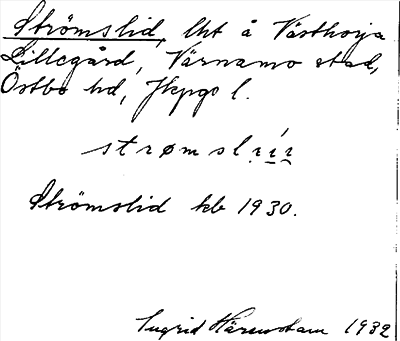 Strömslid, lht å Västhorja
Lillegård, Värnamo stad,
Östbo hd, Jkpgs l.
strømsl
Strömslid kb 1930.
Ingrid Härenstam 1932